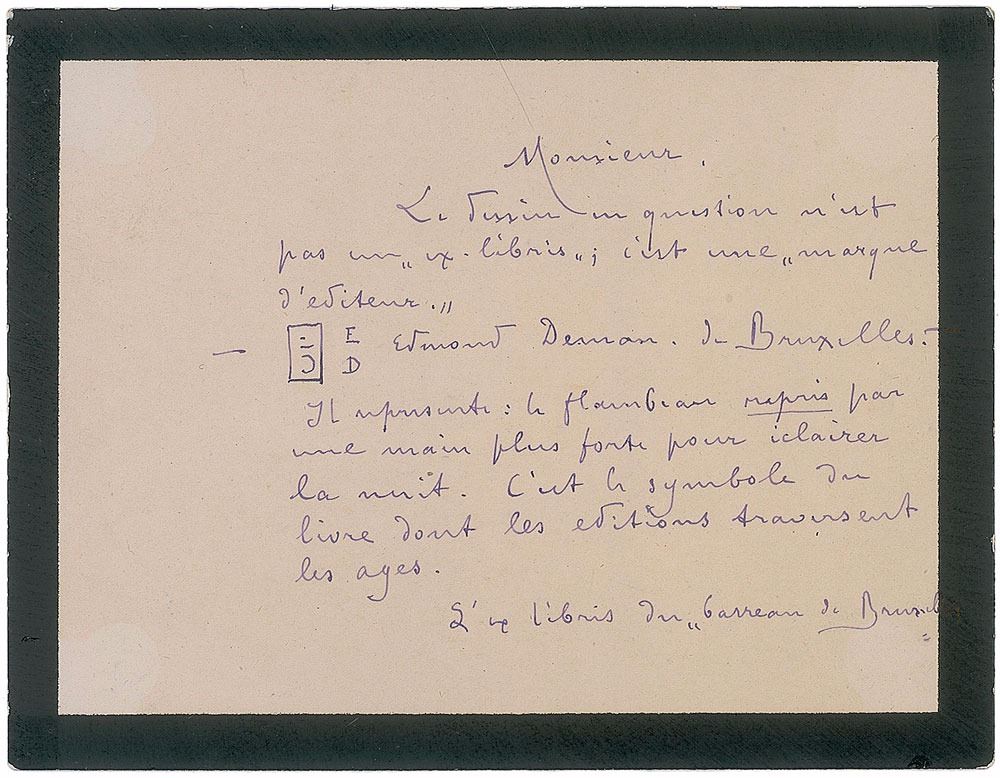 Monsieur.
Le dessin en question n'est
pas un „ex-libris„; c'est une „marque
d'editeur.„
— E D Edmond Deman. de Bruxelles.-
Il represente: le flambeau repris par
une main plus forte pour eclairer
la nuit. C'est le symbole du
livre dont les editions traversent
les ages.
L'ex libris du „barreau de Bruxel